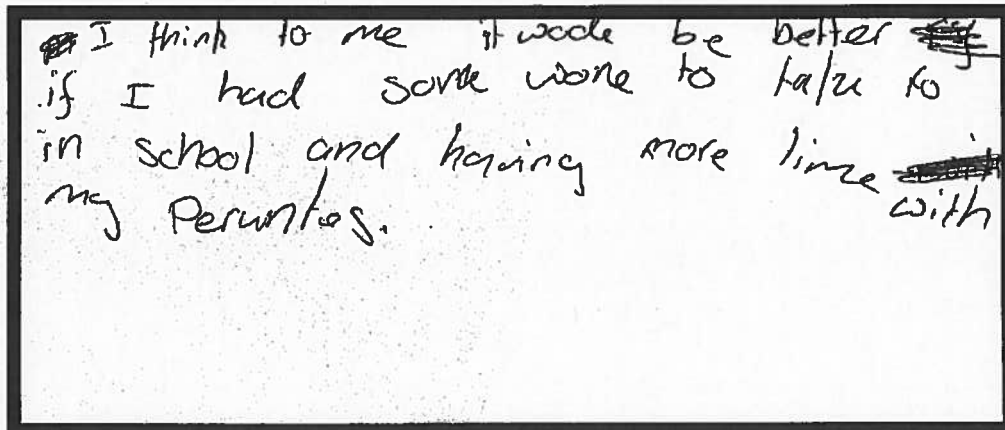 I think to me it wode be better
if I had some wone to talk to
in school and having more time
with
my Peruntes.